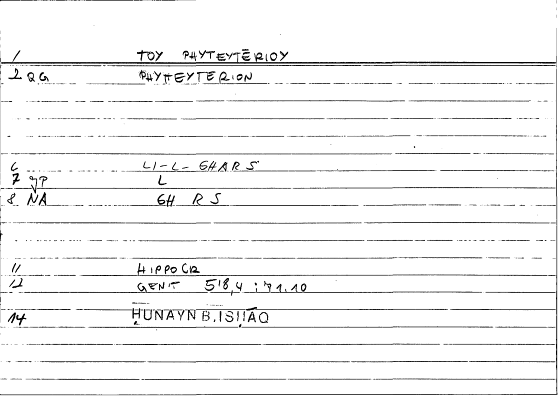 1 TOY PHYTEYTĒRIOY
2 QG PHYTEYTERION
6 LI-L-GHARS
7 JP L
8 NA GH R S
11 HIPPOCR
12 GENIT 518,4 : 71.10
14 ḤUNAYN B. ISḤĀQ